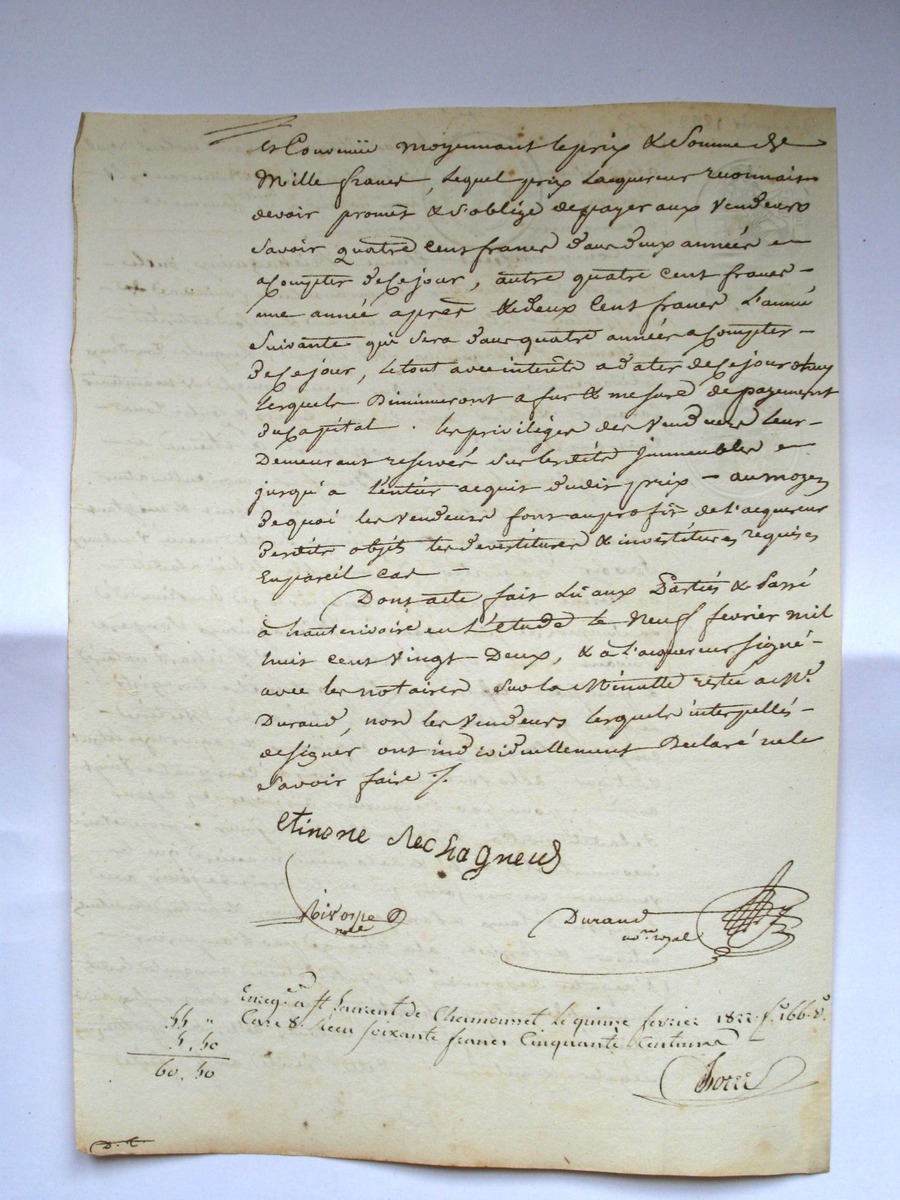 et Convenüe moyennant le prix & Somme de
Mille francs, lequel prix l'acquereur reconnait
devoir promet & s'oblige de payer aux Vendeurs
Savoir quatre Cent francs dans deux années en
acompter de Ce jour, autre quatre Cent francs -
une année après & deux Cent francs l'année
Suivante qui sera dans quatre années acompter -
de Ce jour, le tout avec intérêts a dater de Ce jour
lesquels Diminueront a fur & mesure de payement
du Capital. les privilèges des Vendeurs leur -
Demeurant reservés Sur lesdits immeubles
jusqu'à l'entier acquit dudit prix - au moyen
de quoi les Vendeurs font au profit de l'acquereur
desdits objets les devestitures & investitures requises
En pareil cas -
Dont acte fait Lu aux Parties & Passé
à hauterivoire en L'étude le Neuf fevrier mil
huit cent Vingt Deux, & à l'acquereur Signé -
avec les notaires Sur la Minutte restée à Me
Durand, non les Vendeurs lesquels interpellés -
de Signer ont individuellement Déclaré ne le
Savoir faire ./.
etinone
nore
Durand
nore royal
Enregé à St Laurent de Chamousset le quinze fevrier 1822 fo 166 Vo
Case 8 Reçu Soixante francs Cinquante Centimes
55 "
5,50
60,50
D. C.